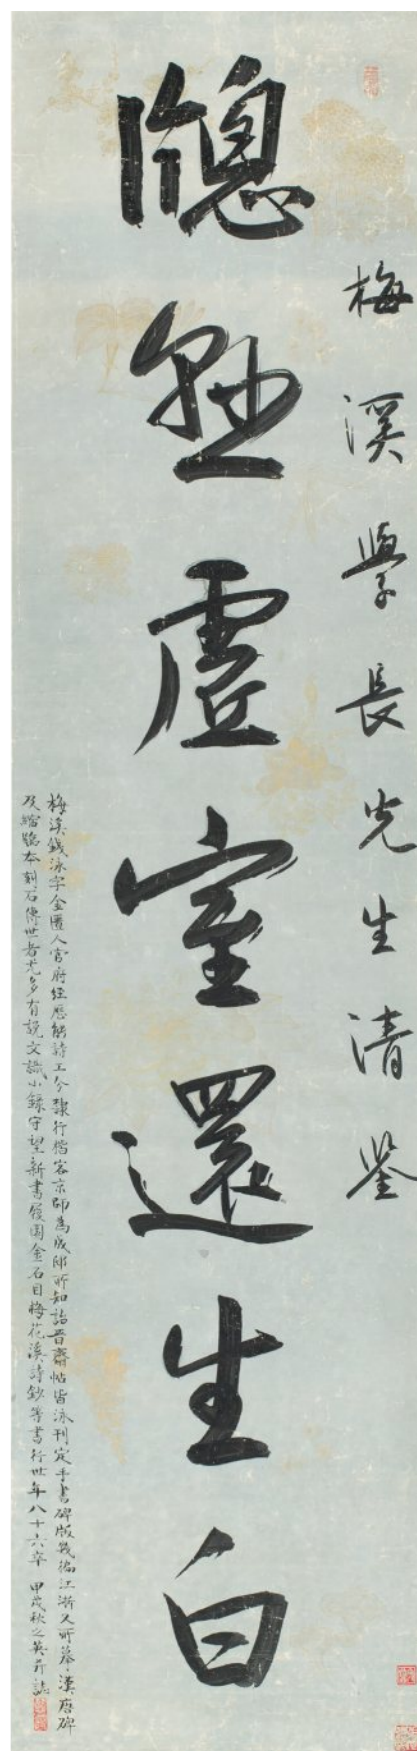 梅溪學長先生清鑒
牕虛室還生白
梅溪錢泳字金匱人官府經歷能詩工今隸行楷客京師爲成邸所知詒晉齋帖皆泳刊定手書碑版幾徧江浙又所摹漢唐碑
及縮臨本刻石傳世者尤多有說文識小錄守望新書履園金石目梅花溪詩鈔等書行世年八十六卒 甲戌秋之英并誌